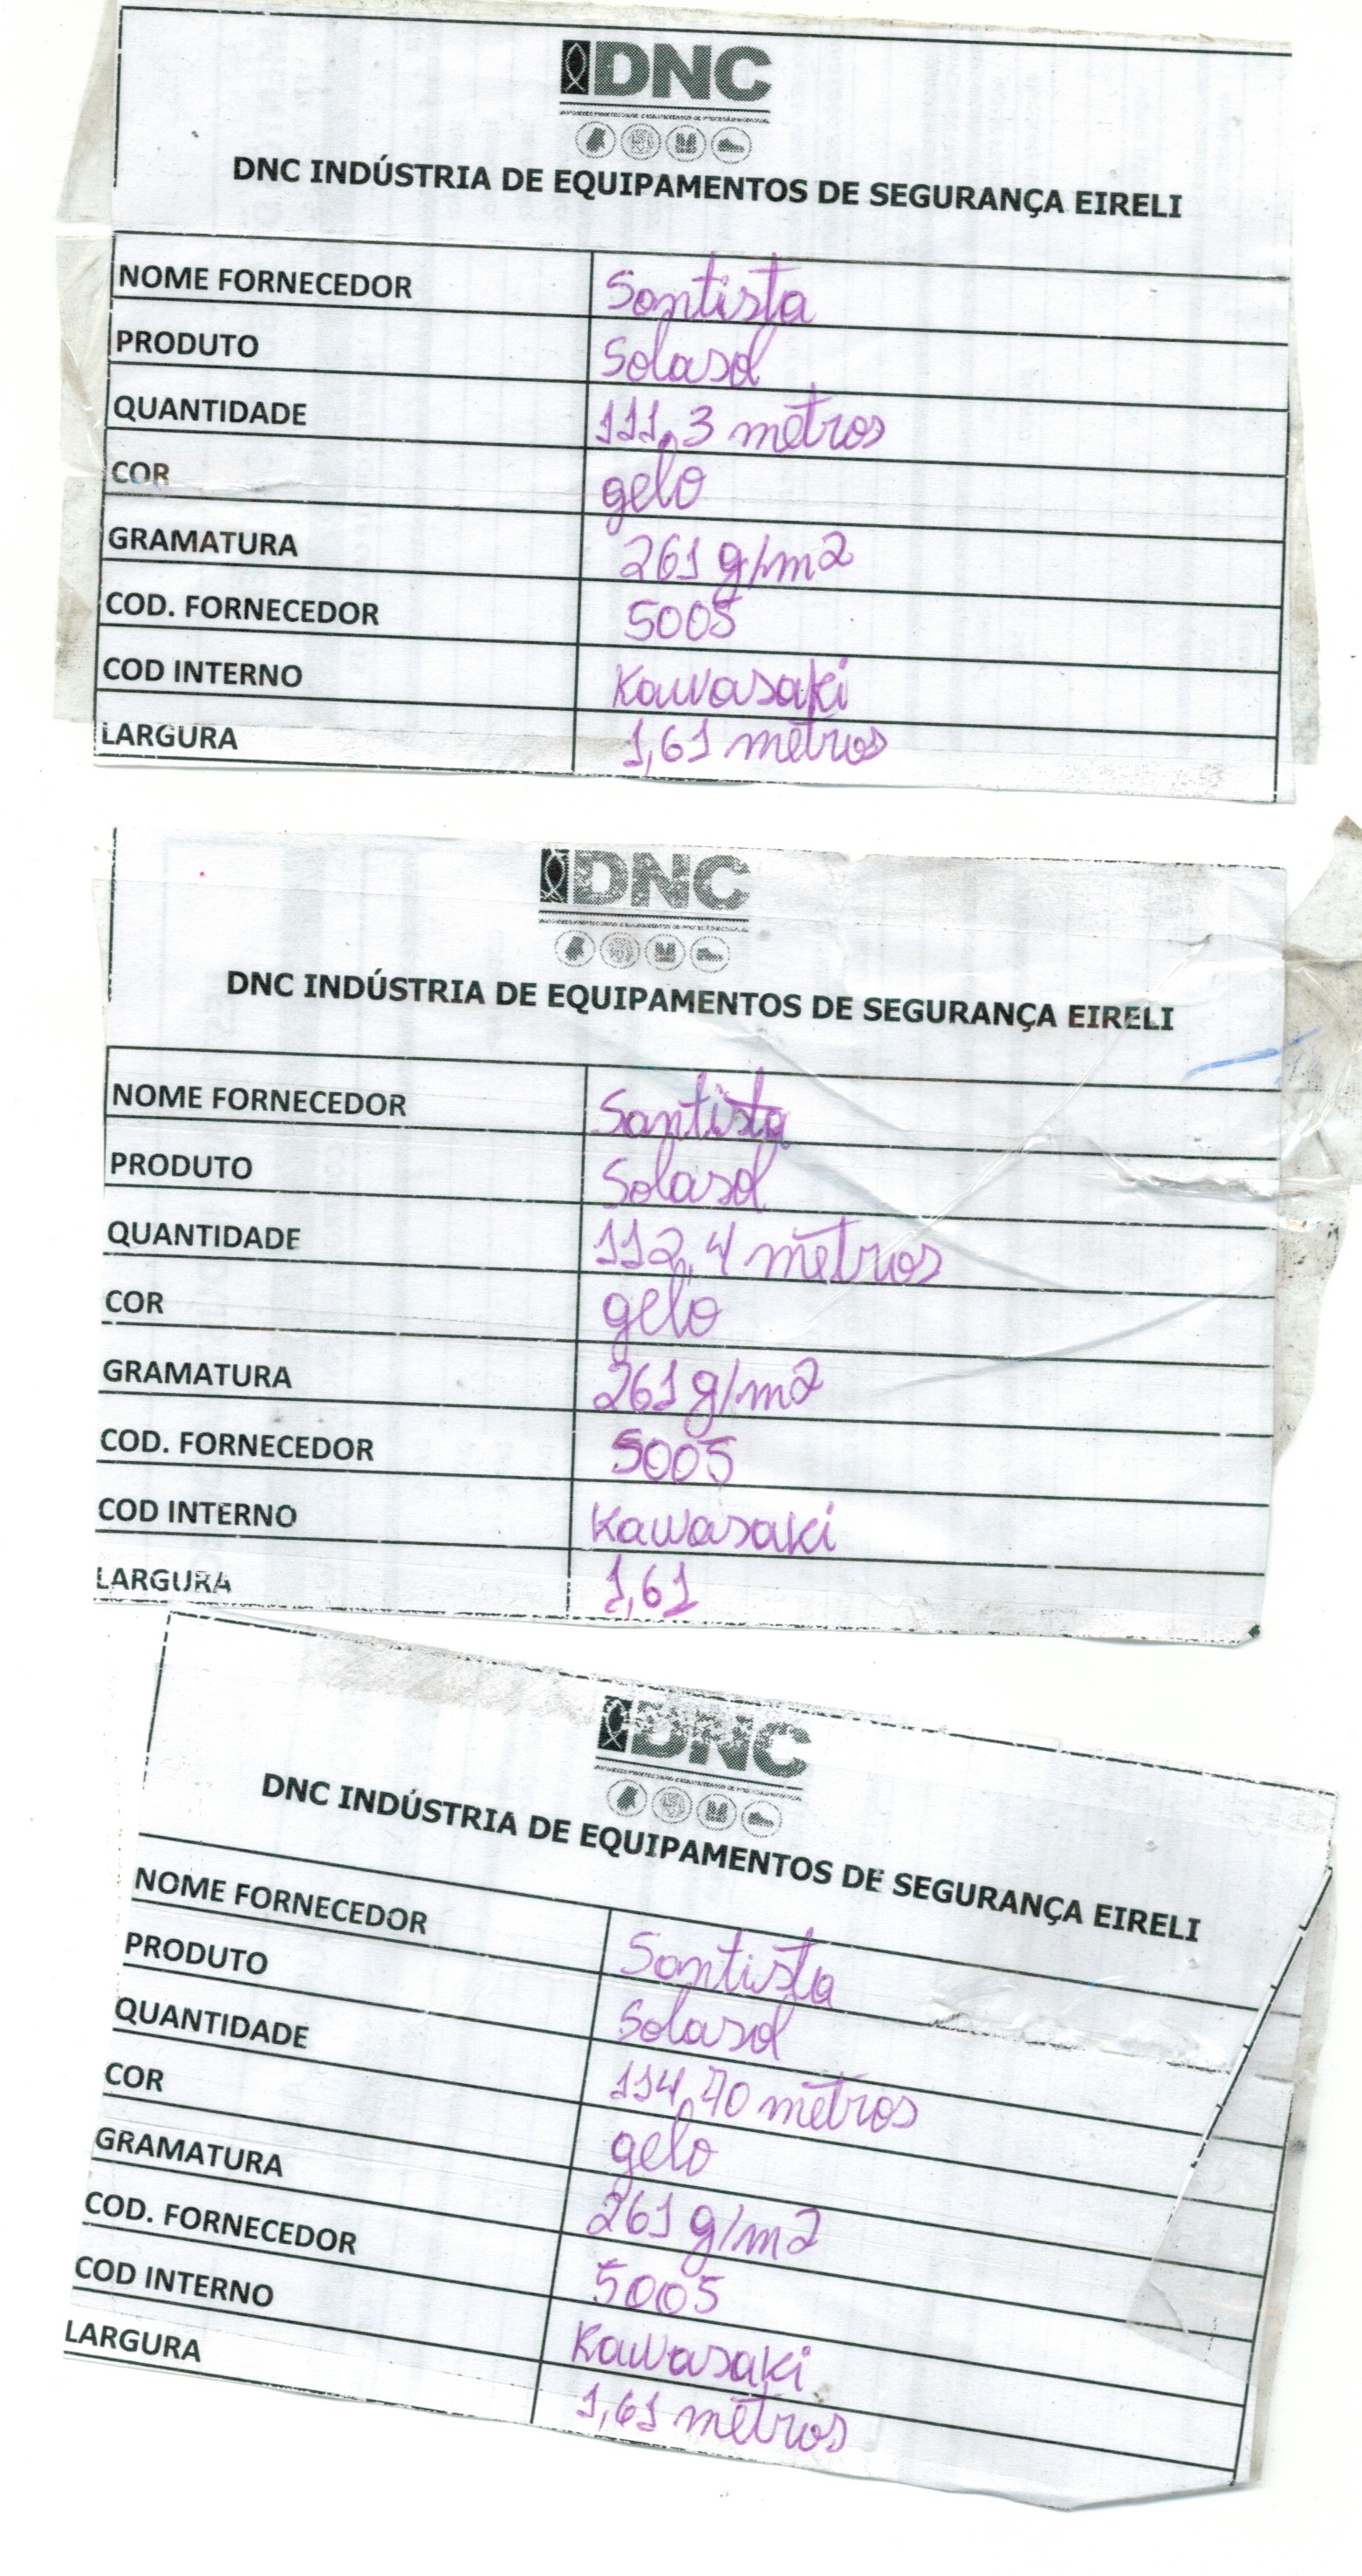 DNC
DNC INDÚSTRIA DE EQUIPAMENTOS DE SEGURANÇA EIRELI
NOME FORNECEDOR Santista
PRODUTO Solasol
QUANTIDADE 111,3 metros
COR gelo
GRAMATURA 261 g/m2
COD. FORNECEDOR 5005
COD INTERNO Kawasaki
LARGURA 1,61 metros
DNC
DNC INDÚSTRIA DE EQUIPAMENTOS DE SEGURANÇA EIRELI
NOME FORNECEDOR Santista
PRODUTO Solasol
QUANTIDADE 112,4 metros
COR gelo
GRAMATURA 261 g/m2
COD. FORNECEDOR 5005
COD INTERNO Kawasaki
LARGURA 1,61
DNC
DNC INDÚSTRIA DE EQUIPAMENTOS DE SEGURANÇA EIRELI
NOME FORNECEDOR Santista
PRODUTO Solasol
QUANTIDADE 114,70 metros
COR gelo
GRAMATURA 261 g/m2
COD. FORNECEDOR 5005
COD INTERNO Kawasaki
LARGURA 1,61 metros